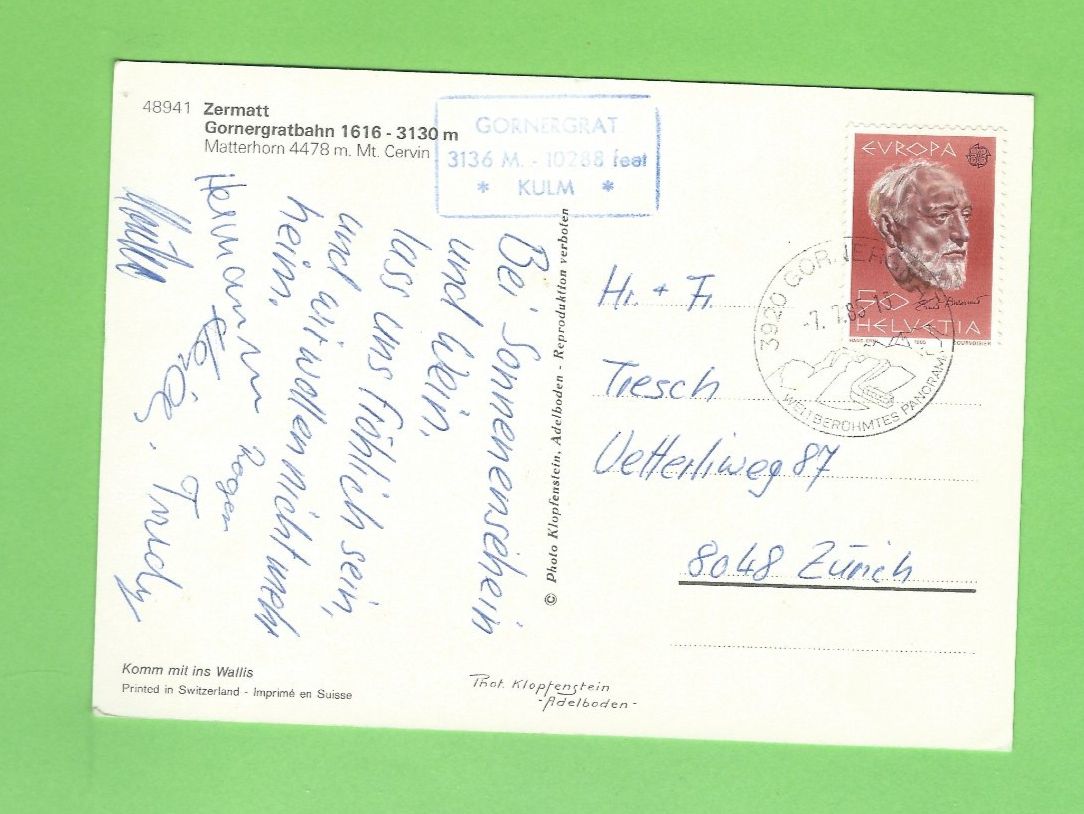 48941 Zermatt
Gornergratbahn 1616 - 3130 m
Matterhorn 4478 m. Mt. Cervin
GORNERGRAT
3136 M. - 10288 feet
* KULM *
EVROPA
50
HELVETIA
3920 GORNERGRAT
-7. 7.85-15
WELTBERÜHMTES PANORAMA
Bei Sonnenenschein
und Wein,
lass uns fröhlich sein,
und wir wollen nicht mehr
heim.
Hermann
Trudy
Hr. + Fr.
Tresch
Vetterliweg 87
8048 Zürich
© Photo Klopfenstein, Adelboden - Reproduktion verboten
Komm mit ins Wallis
Printed in Switzerland - Imprimé en Suisse
Phot. Klopfenstein
- Adelboden -